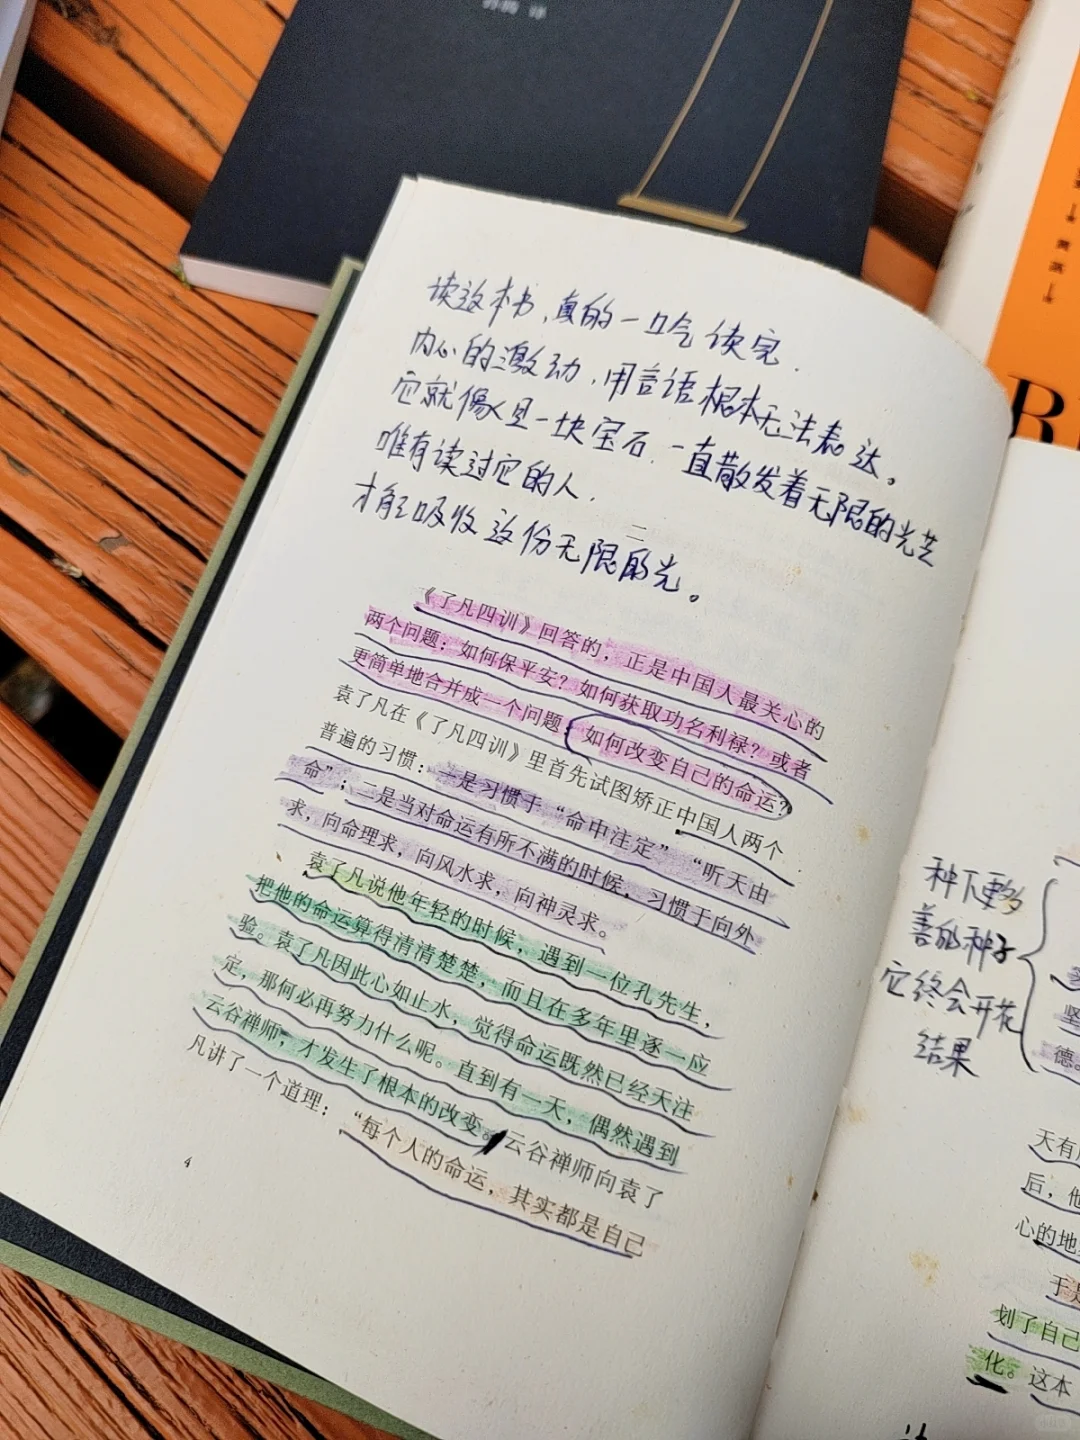 孙腾 译
读这本书、真的一口气读完.
内心的激动.用言语根本无法表达。
它就像是一块宝石.一直散发着无限的光芒
唯有读过它的人.
才能吸收这份无限的光。
二
《了凡四训》回答的，正是中国人最关心的
两个问题：如何保平安？如何获取功名利禄？或者
更简单地合并成一个问题：如何改变自己的命运？
袁了凡在《了凡四训》里首先试图矫正中国人两个
普遍的习惯：一是习惯于“命中注定”“听天由
命”；二是当对命运有所不满的时候，习惯于向外
求，向命理求，向风水求，向神灵求。
袁了凡说他年轻的时候，遇到一位孔先生，
把他的命运算得清清楚楚，而且在多年里逐一应
验。袁了凡因此心如止水，觉得命运既然已经天注
定，那何必再努力什么呢。直到有一天，偶然遇到
云谷禅师，才发生了根本的改变。云谷禅师向袁了
凡讲了一个道理：“每个人的命运，其实都是自己
4
种下更多
善的种子
它终会开花
结果
坚
德。
天有
后，他
心的地
于是
划了自己
化。这本
R